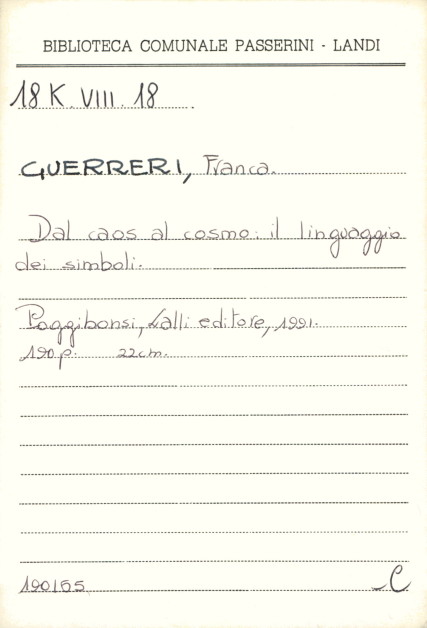 BIBLIOTECA COMUNALE PASSERINI - LANDI
18 K. VIII. 18
GUERRERI, Franca.
Dal caos al cosmo: il linguaggio
dei simboli.
Poggibonsi, Lalli editore, 1991.
190 p. 22 cm.
190165 C